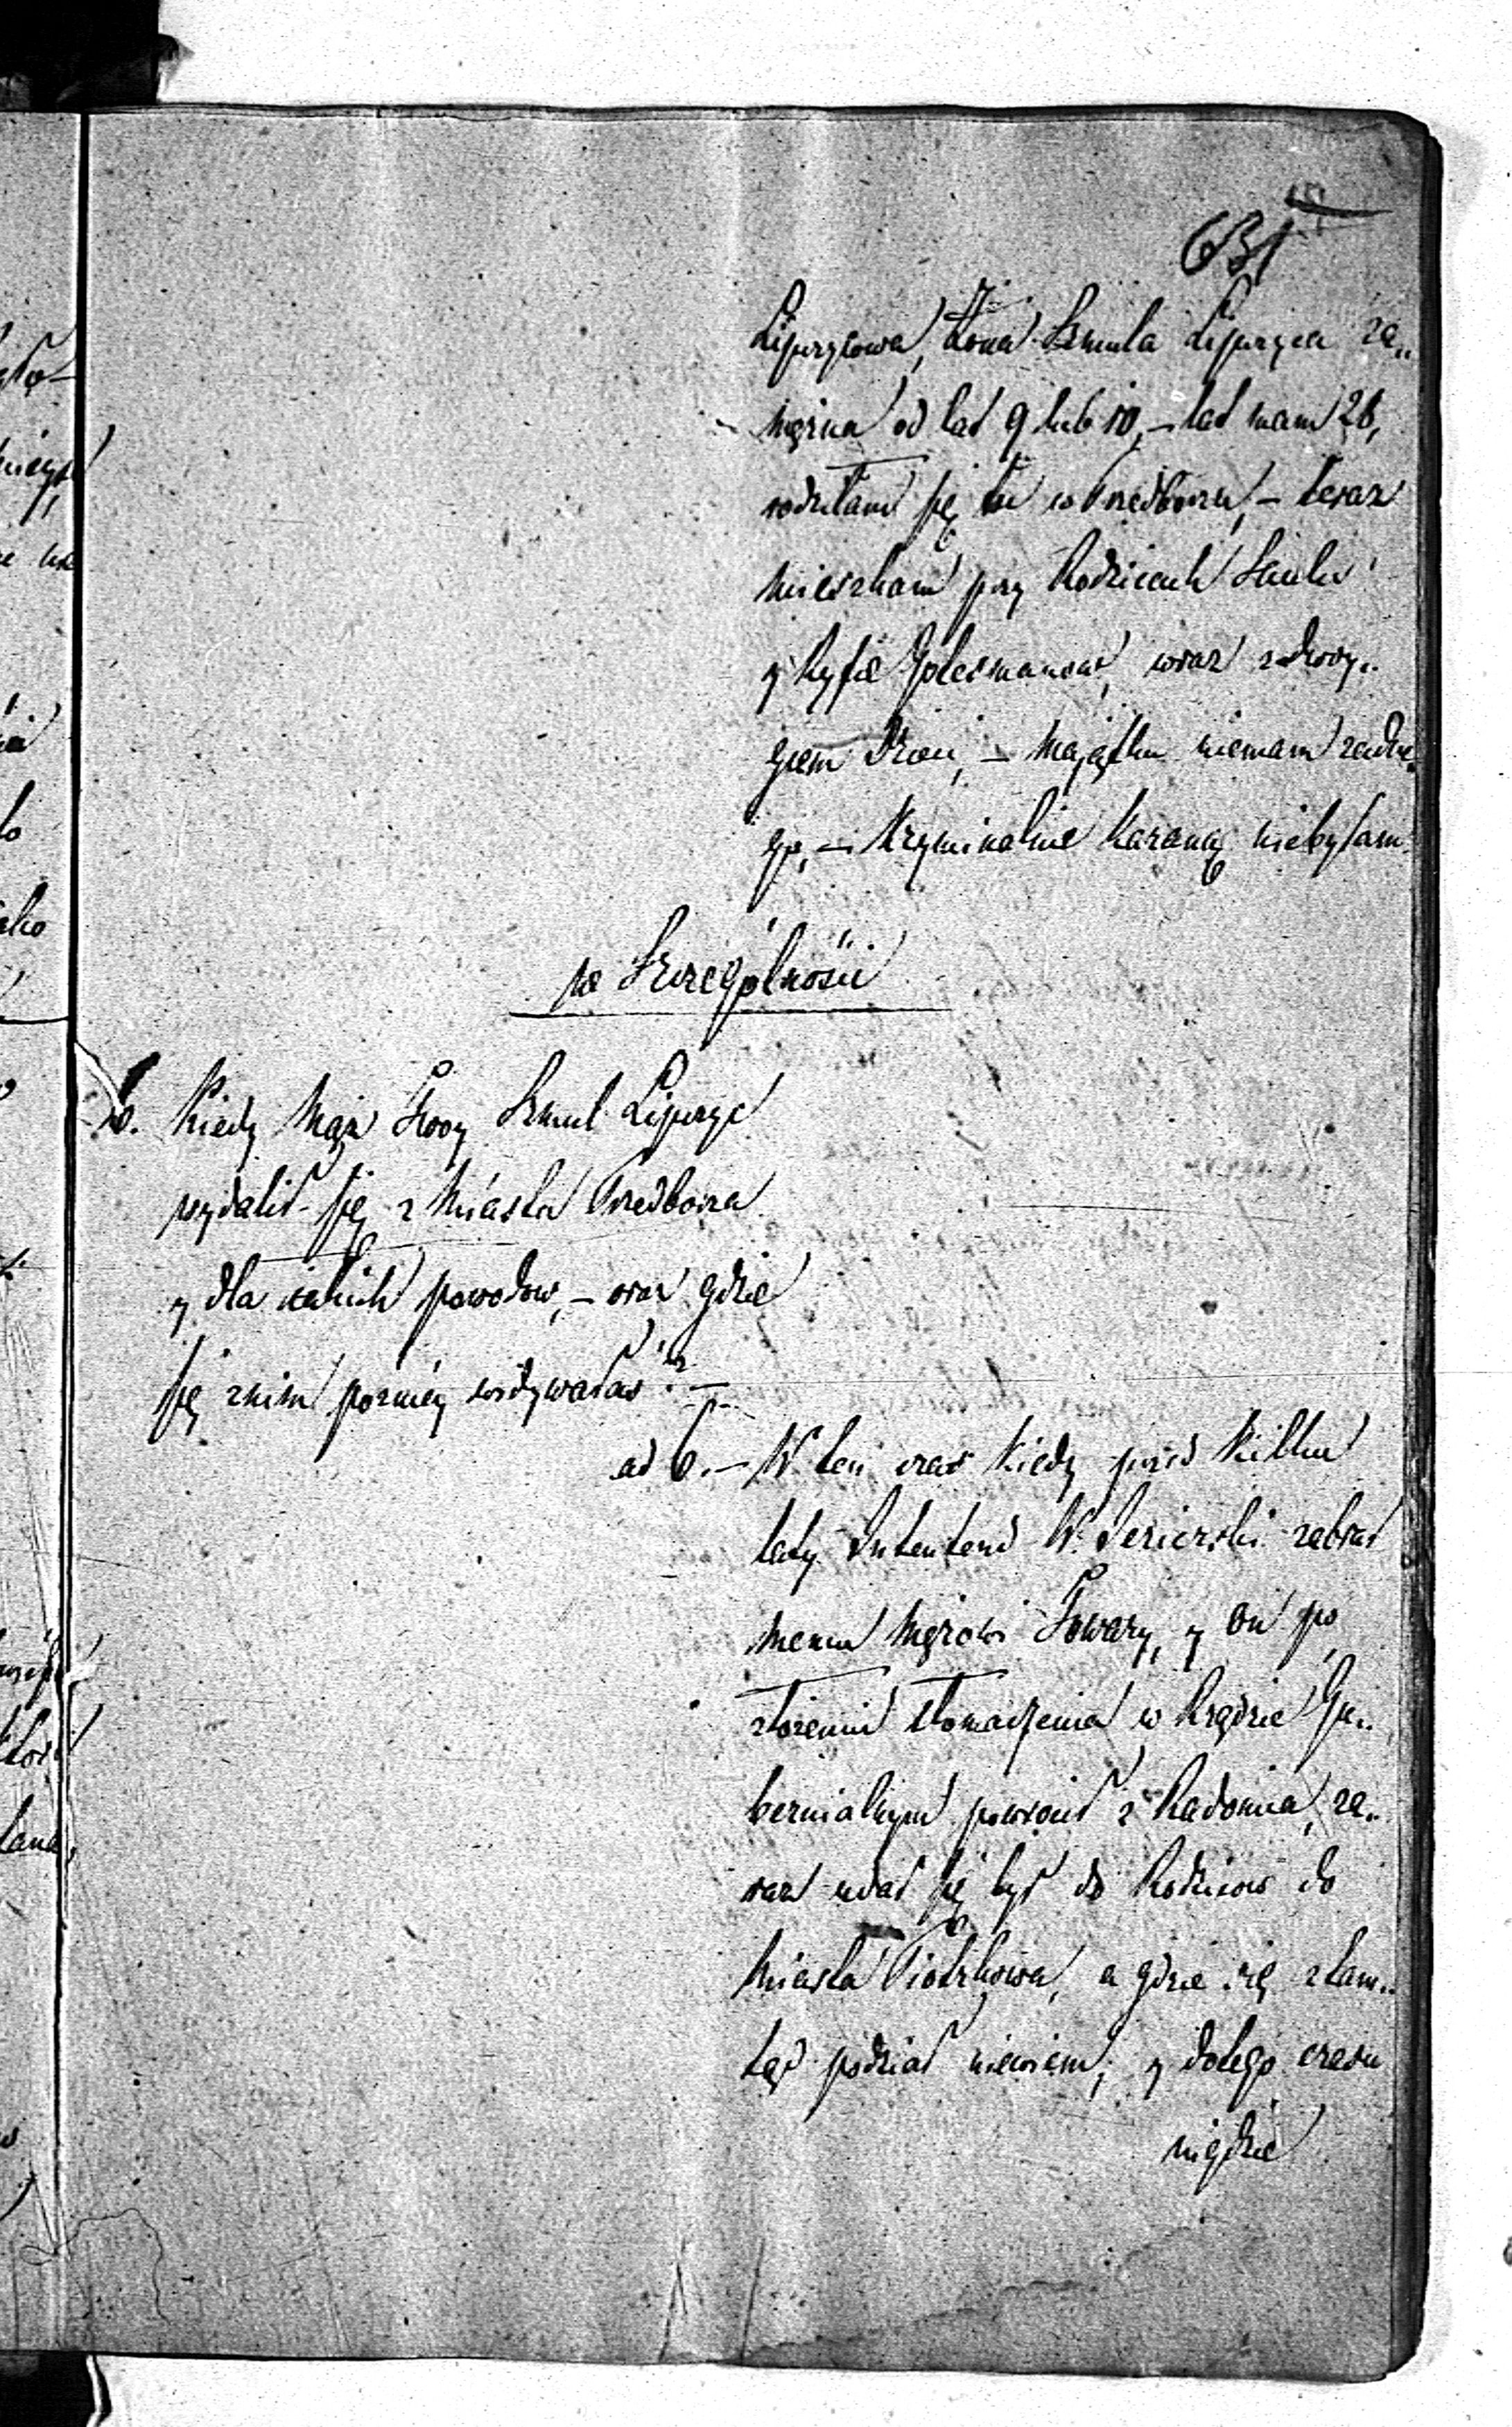 631
Lipszycowa, Żona Szmula Lipszyca za„
mężna od lat 9 lub 10, – lat mam 26,
rodziłam się tu w Przedborzu, – teraz
mieszkam przy Rodzicach
y Ryfie wraz z dwoy„
giem Dzieci, – Majątku niemam żadne„
go, – Kryminalnie Karaną niebyłam.
w Szczególności
6. Kiedy Mąż Twoy Szmul Lipszyc
wydalił się z Miasta Przedborza
y dla iakich powodow, – oraz gdzie
się z nim pozniey widywałas? –
ad 6. – W ten czas kiedy przed kilku
laty Intendent W. Jezierski zabrał
memu Mężowi Towary, y on po
złożeniu tłomaczenia w Rządzie Gu„
bernialnym powrocił z Radomia, za„
raz udał się był do Rodzicow do
Miasta Piotrkowa, a gdzie się z tam„
tąd podział niewiem, y dotego czasu
nigdzie